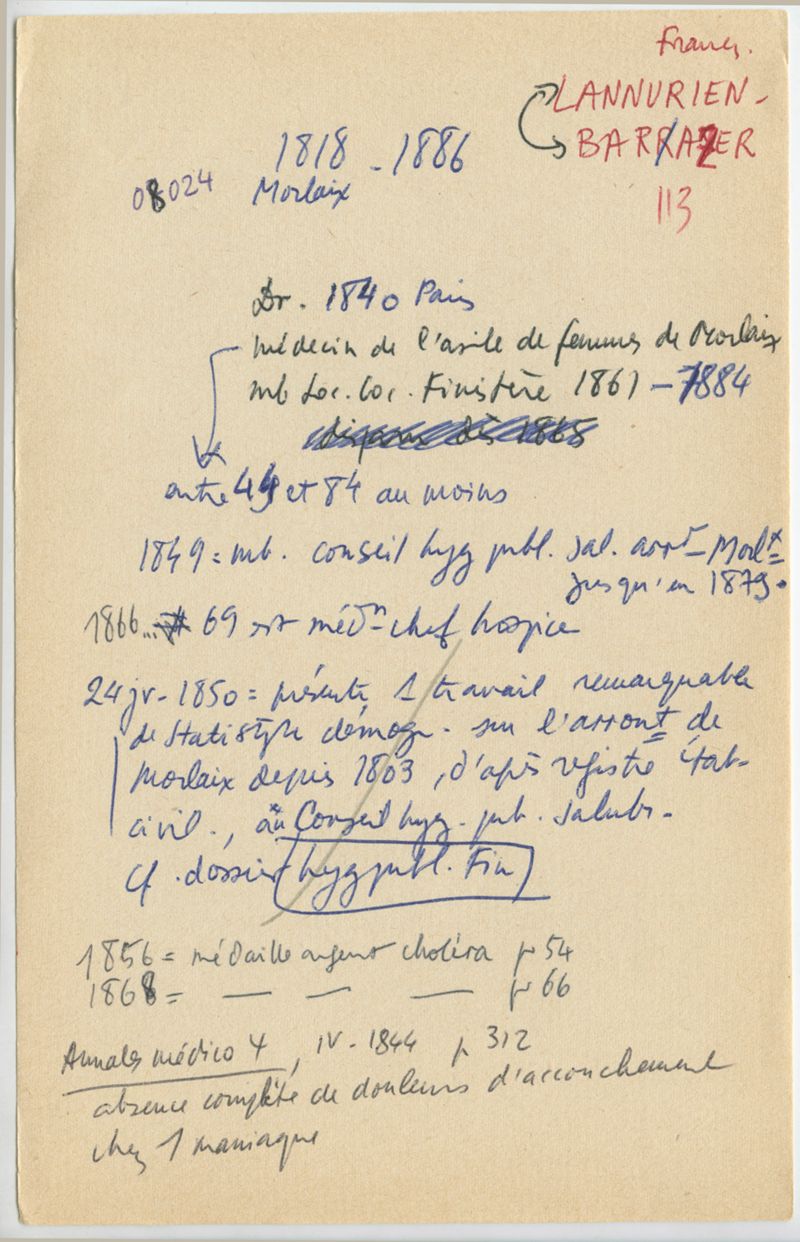 Franç.
LANNURIEN-
BARRAZER
113
1818 - 1886
08024 Morlaix
Dr. 1840 Paris
médecin de l'asile de femmes de Morlaix
mb Soc. loc. Finistère 1861 - 1884
disparu dès 1868
entre 44 et 84 au moins
1849 = mb. conseil hyg publ. sal. arrt - Morlx
jusqu'en 1879.
1866... 69 est médn chef hospice
24 jr - 1850 = présente 1 travail remarquable
de Statistiq démogr. sur l'arront de
Morlaix depuis 1803, d'après registre état-
civil., au Conseil hyg. pub. salubr.
Cf. dossier hyg publ. Fin
1856 = médaille argent choléra pr 54
1868 = — — — pr 66
Annales médico 4, IV - 1844 p 312
absence complète de douleurs d'accouchement
chez 1 maniaque